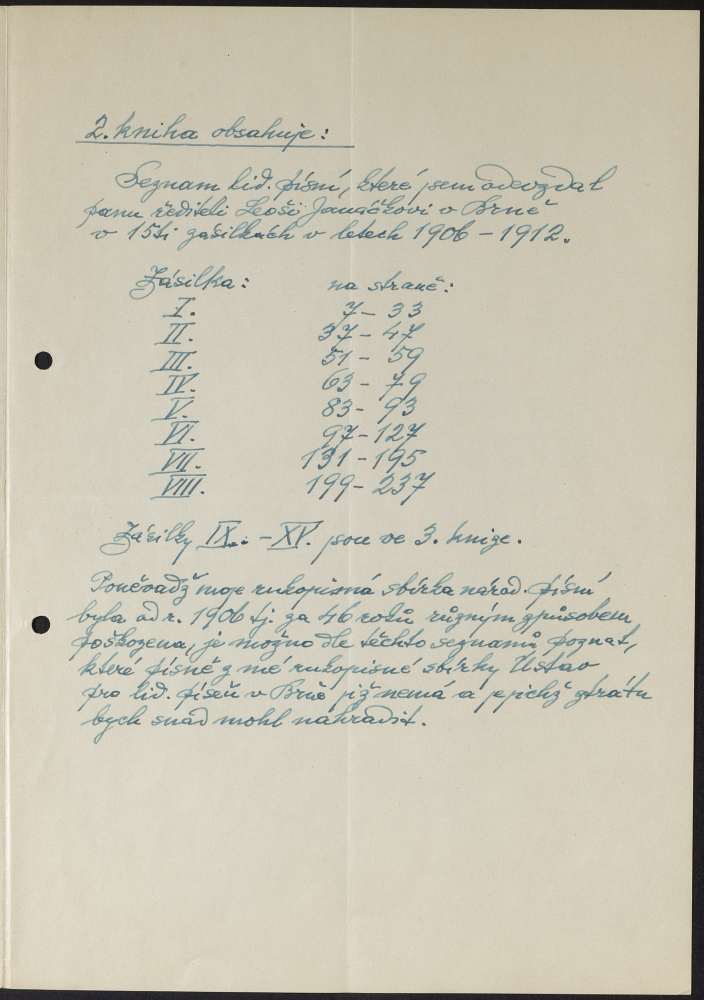 2. kniha obsahuje:
Seznam lid. písní, které jsem odevzdal
panu řediteli Leoši Janáčkovi v Brně
v 15ti zásilkách v letech 1906 – 1912.
Zásilka: na straně:
I. 7 – 33
II. 37 – 47
III. 51 – 59
IV. 63 – 79
V. 83 – 93
VI. 97 – 127
VII. 131 – 195
VIII. 199 – 237
Zásilky IX. – XV. jsou ve 3. knize.
Poněvadž moje rukopisná sbírka národ. písní
byla od r. 1906 tj. za 46 roků různým způsobem
poškozena, je možno dle těchto seznamů poznat,
které písně z mé rukopisné sbírky Ústav
pro lid. píseň v Brně již nemá a jejichž ztrátu
bych snad mohl nahradit.